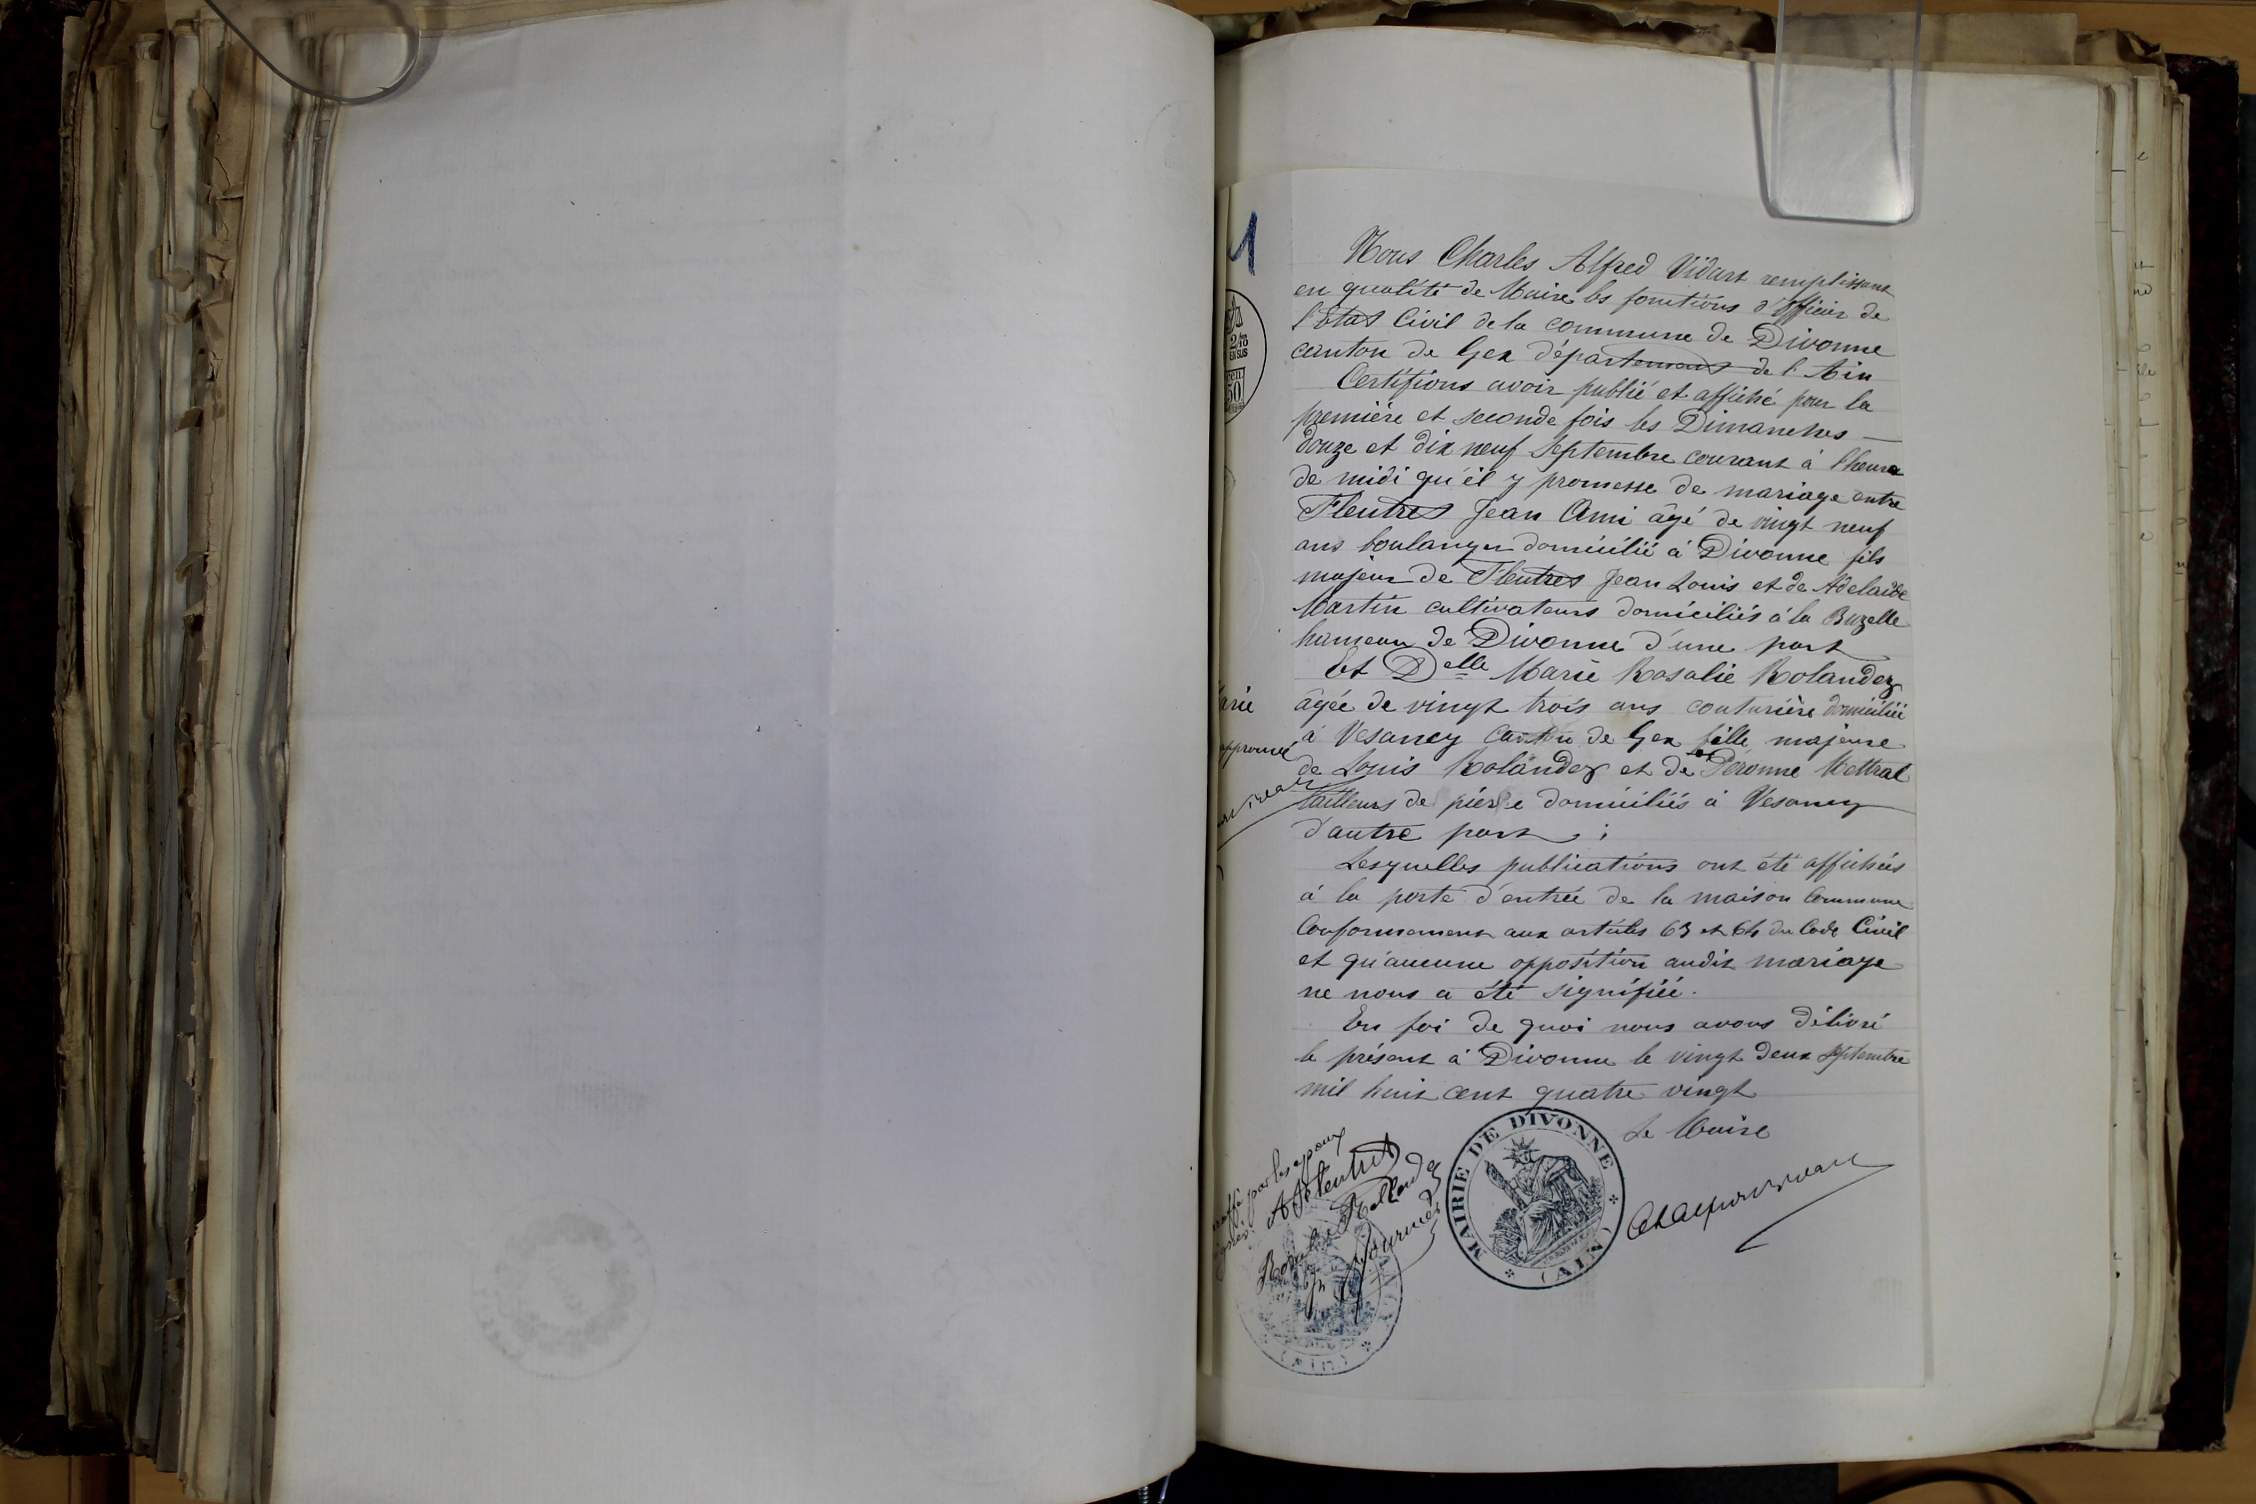 1
Nous Charles Alfred Vidart remplissant
en qualité de Maire les fonctions d'officier de
l'Etat Civil de la commune de Divonne
canton de Gex département de l'Ain
Certifions avoir publié et affiché pour la
première et seconde fois les Dimanches
douze et dix neuf Septembre courant à l'heure
de midi qu'il y promesse de mariage entre
Fleutret Jean Ami âgé de vingt neuf
ans boulanger domicilié à Divonne fils
majeur de Fleutret Jean Louis et de Adelaïde
Martin cultivateurs domiciliés à la Buzelle
hameau de Divonne d'une part
Et Delle Marie Rosalie Rolandez
âgée de vingt trois ans couturière domiciliée
à Vesancy Canton de Gex fille majeure
de Louis Rolandez et de Peronne Mettral
tailleurs de pierre domiciliés à Vesancy
d'autre part ;
Lesquelles publications ont été affichées
à la porte d'entrée de la maison Commune
Conformement aux articles 63 et 64 du Code Civil
et qu'aucune opposition audit mariage
ne nous a été signifiée.
En foi de quoi nous avons délivré
le présent à Divonne le vingt deux septembre
mil huit cent quatre vingt
Le Maire
MAIRIE DE DIVONNE
(AIN)
approuvé
par les époux
A Fleutret
Rosalie Rollandez
Fournier
(AIN)
2/10
EN SUS
50